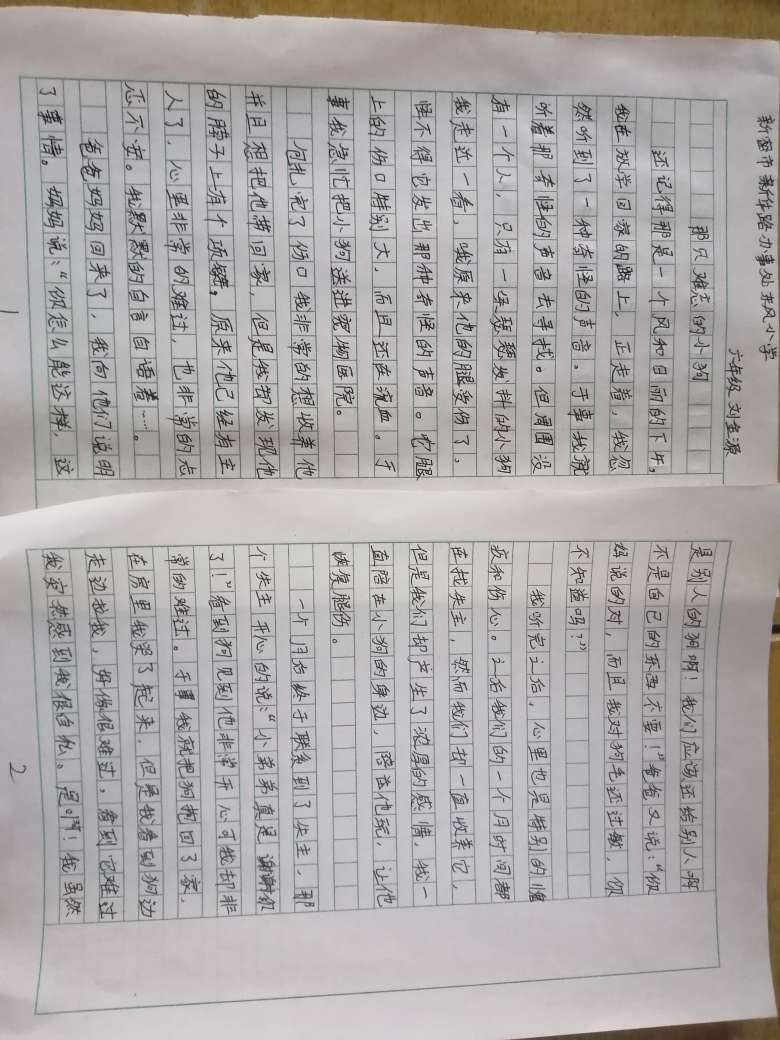 新密市新华路办事处东风小学
六年级 刘垒源
那只难忘的小狗
还记得那是一个风和日丽的下午,
我在放学回家的路上,正走着,我忽
然听到了一种奇怪的声音。于事我就
听着那奇怪的声音去寻找。但周围没
有一个人,只有一只瑟瑟发抖的小狗
我走近一看,哦原来他的腿受伤了,
怪不得它发出那种奇怪的声音。它腿
上的伤口特别大,而且还在流血。于
事我急忙把小狗送进宠物医院。
包扎完了伤口我非常的想收养他
并且想把他带回家,但是我却发现他
的脖子上有个项链,原来他已经有主
人了,心里非常的难过,也非常的忐
忑不安。我默默的自言自语着……。
爸爸妈妈回来了,我向他们说明
了事情。妈妈说:“你怎么能这样,这
1
是别人的狗啊!我们应该还给别人啊
不是自己的东西不要!”爸爸又说:“你
妈说的对,而且我对狗毛还过敏,你
不知道吗?”
我听完之后,心里也是特别的愧
疚和伤心。之后我们的一个月时间都
在找失主,然而我们却一直收养它,
但是我们却产生了浓厚的感情,我一
直陪在小狗的身边,陪益他玩,让他
快復腿伤。
一个月后终于联系到了失主,那
个失主开心的说:“小弟弟真是谢谢你
了!”看到狗见到他非常开心可我却非
常的难过。于是我就把狗抱回了家,
在房里我哭了起来,但是我看到狗边
走边找我,好像很难过,看到它难过
我安然感到我很自私。是啊!我虽然
2